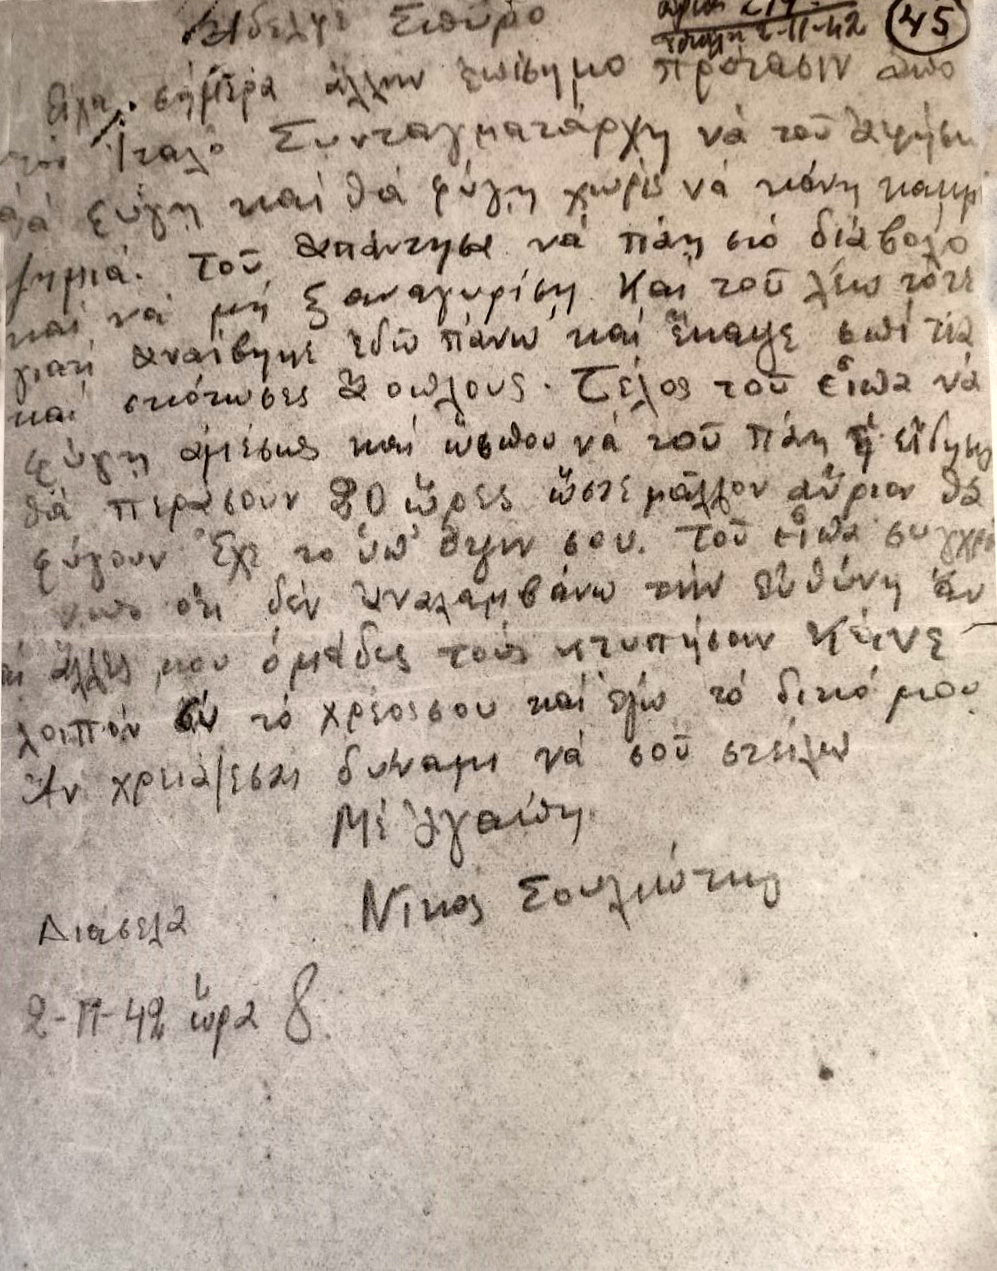 Ἀδελφέ Σπῦρο
2-11-42
45
Εἶχα σήμερα ἄλλην ἐπίσημο πρότασιν ἀπό
τόν Ἰταλό Συνταγματάρχη νά τοῦ ἀφήσω
νά φύγη καί θά φύγη χωρίς νά κάνη καμμι
ζημιά. Τοῦ ἀπάντησα νά πάη στό διάβολο
καί νά μή ξαναγυρίση Καί τοῦ λέω τότε
γιατί ἀναίβηκε ἐδῶ πάνω καί ἔκαψε σπίτια
καί σκότωσες ἀόπλους. Τέλος τοῦ εἶπα νά
φύγη ἀμέσως καί ὥσπου νά τοῦ πάη ἡ εἴδησις
θά περάσουν 20 ὥρες ὥστε μᾶλλον αὔριον θά
φύγουν Ἔχε το ὑπ' ὄψιν σου. Τοῦ εἶπα συγχρό
νως ὅτι δέν ἀναλαμβάνω τήν εὐθύνη ἄν
αἱ ἄλλες μου ὁμάδες τούς κτυπήσουν Κάνε
λοιπόν σύ τό χρέος σου καί ἐγώ τό δικό μου.
Ἄν χρειάζεσαι δύναμι νά σοῦ στείλω
Μέ Ἀγάπη
Νῖκος Σουλιώτης
Διάσελα
2-11-42 ὥρα 8